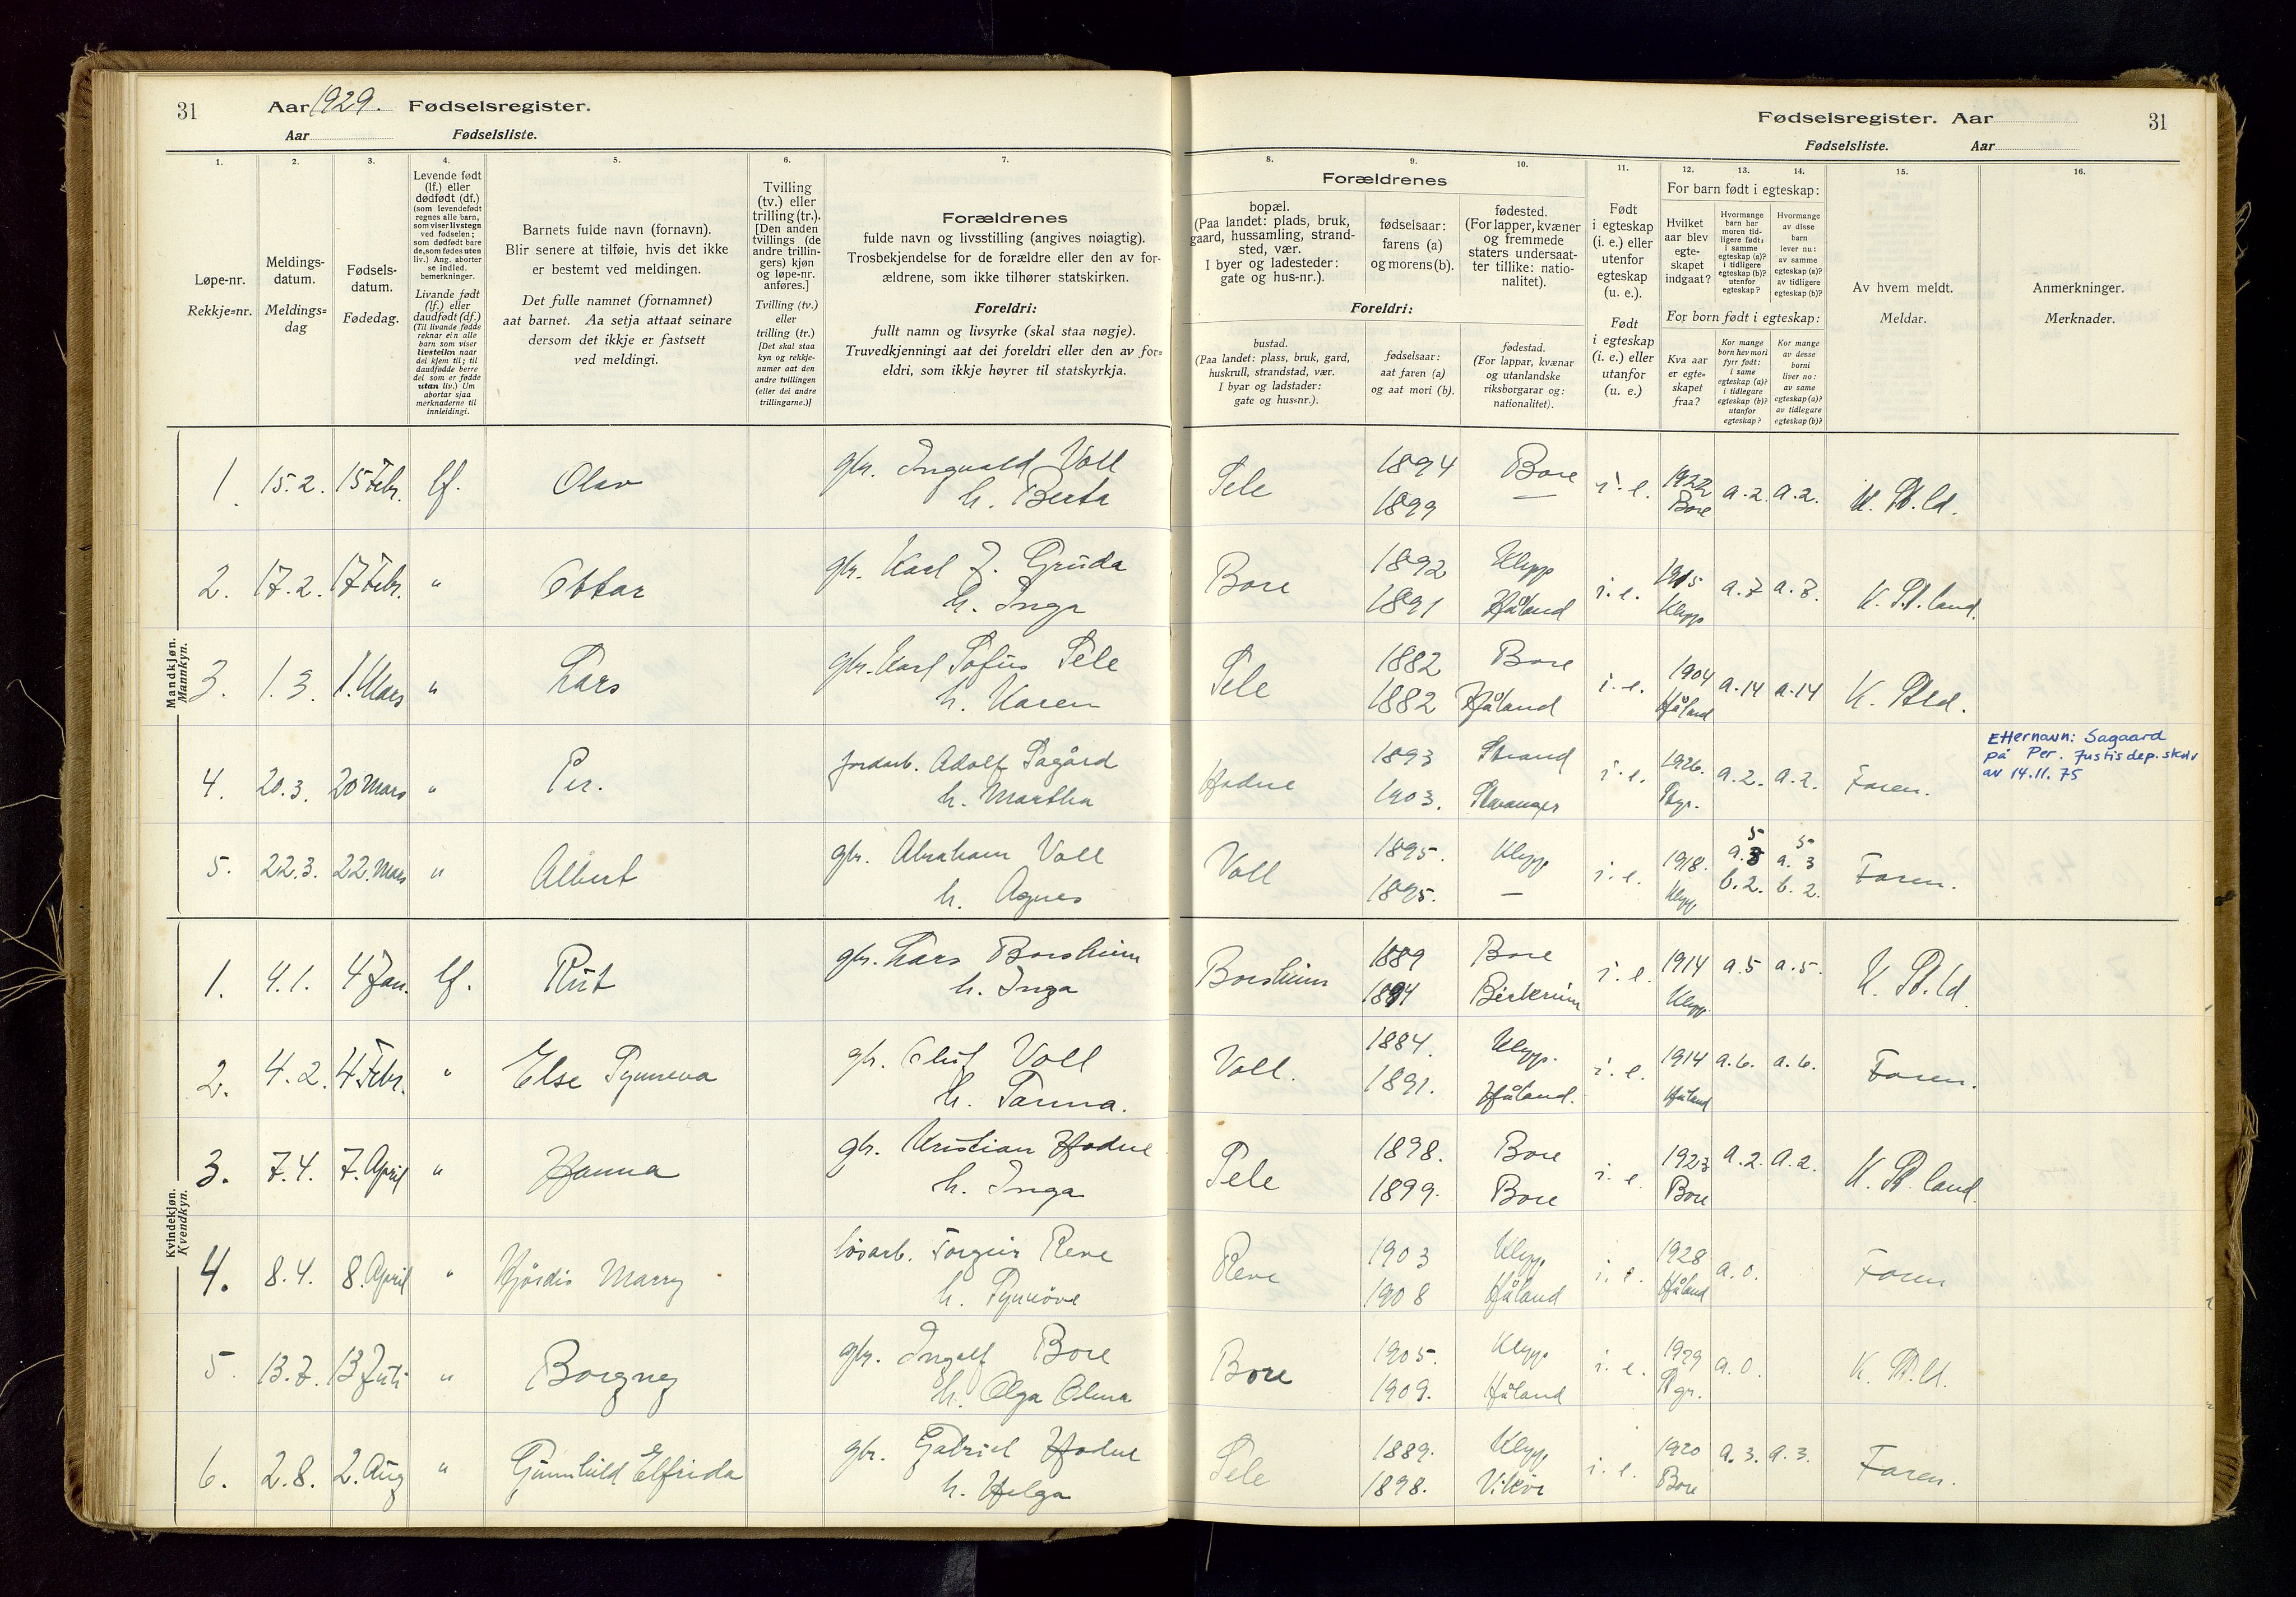 31 Aar 1929. Fødselsregister.
Aar Fødselsliste.
Fødselsregister. Aar 31
Fødselsliste. Aar
1. 2. 3. 4. 5. 6. 7. 8. 9. 10. 11. 12. 13. 14. 15. 16.
Løpe-nr.
Rekkje-nr.
Meldings-
datum.
Meldings-
dag
Fødsels-
datum.
Fødedag.
Levende født
(lf.) eller
dødfødt (df.)
(som levendefødt
regnes alle barn,
som viser livstegn
ved fødselen;
som dødfødt bare
de, som fødes uten
liv.) Ang. aborter
se indled.
bemerkninger.
Livande født
(lf.) eller
daudfødt (df.)
(Til livande fødde
reknar ein alle
barn som viser
livsteikn naar
dei kjem til; til
daudfødde berre
dei som er fødde
utan liv.) Um
abortar sjaa
merknaderne til
innleidingi.
Barnets fulde navn (fornavn).
Blir senere at tilføie, hvis det ikke
er bestemt ved meldingen.
Det fulle namnet (fornamnet)
aat barnet. Aa setja attaat seinare
dersom det ikkje er fastsett
ved meldingi.
Tvilling
(tv.) eller
trilling (tr.).
[Den anden
tvillings (de
andre trillin-
gers) kjøn
og løpe-nr.
anføres.]
Tvilling (tv.)
eller
trilling (tr.)
[Det skal staa
kyn og rekkje-
numer aat den
andre tvillingen
(eller dei andre
trillingarne.)]
Forældrenes
fulde navn og livsstilling (angives nøiagtig).
Trosbekjendelse for de forældre eller den av for-
ældrene, som ikke tilhører statskirken.
Foreldri:
fullt namn og livsyrke (skal staa nøgje).
Truvedkjenningi aat dei foreldri eller den av for-
eldri, som ikkje høyrer til statskyrkja.
Forældrenes
bopæl.
(Paa landet: plads, bruk,
gaard, hussamling, strand-
sted, vær.
I byer og ladesteder:
gate og hus-nr.).
fødselsaar:
farens (a)
og morens (b).
fødested.
(For lapper, kvæner
og fremmede
staters undersaat-
ter tillike: natio-
nalitet).
Foreldri:
bustad.
(Paa landet: plass, bruk, gard,
huskrull, strandstad, vær.
I byar og ladstader:
gate og hus-nr.).
fødselsaar:
aat faren (a)
og aat mori (b).
fødestad.
(For lappar, kvænar
og utanlandske
riksborgarar og:
nationalitet).
Født
i egteskap
(i. e.) eller
utenfor
egteskap
(u. e.).
Født
i egteskap
(i. e.) eller
utanfor
(u. e.)
For barn født i egteskap:
Hvilket
aar blev
egte-
skapet
indgaat?
Hvormange
barn har
moren tid-
ligere født:
i samme
egteskap (a)?
i tidligere
egteskap (b)?
utenfor
egteskap?
Hvormange
av disse
barn
lever nu:
av samme
egteskap (a)?
av tidligere
egteskap (b)?
For born født i egteskap:
Kva aar
er egte-
skapet
fraa?
Kor mange
born hev mori
fyrr født:
i same
egteskap (a)?
i tidlegare
egteskap (b)?
utanfor
egteskap?
Kor mange
av desse
borni
liver no:
av same
egteskap (a)?
av tidlegare
egteskap (b)?
Av hvem meldt.
Meldar.
Anmerkninger.
Merknader.
Mandkjøn.
Mannkyn.
1. 15.2. 15 Febr. lf. Olav gbr. Ingvald Voll Sele 1894 Bore i. e. 1922 a.2. a.2.
h. Berta 1899 — Bore
2. 17.2. 17 Febr. " Ottar gbr. Karl J. Gruda Bore 1892 Klepp i. e. 1915 a.7 a.7.
h. Inga 1891 Håland Klepp
3. 1.3. 1. Mars " Lars gbr. Karl Sofus Sele Sele 1882 Bore i. e. 1904 a.14 a.14
h. Karen 1882 Håland Håland
4. 20.3. 20 Mars " Per. jordarb. Adolf Sagård Hodne 1893 Strand i. e. 1926. a.2. a.2. Faren.
h. Martha 1903. Stavanger Stgr.
Etternavn: Sagaard
på Per. Justisdep. skriv
av 14.11.75
5. 22.3. 22. Mars " Albert gbr. Abraham Voll Voll 1895. Klepp i. e. 1918. a.3 5 a.3 5 Faren.
h. Agnes 1895. — Klepp b.2. b.2.
Kvindekjøn.
Kvendkyn.
1. 4.1. 4 Jan. lf. Rut gbr. Lars Borsheim Borsheim 1889 Bore i. e. 1914 a.5 a.5.
h. Inga 1894 Birkrim Klepp
2. 4.2. 4 Febr. " Else Synneva gbr. Oluf Voll Voll. 1884. Klepp. i. e. 1914 a.6. a.6. Faren.
h. Sanna. 1891. Håland. Håland
3. 7.4. 7. April " Hanna gbr. Kristian Hodne Sele 1898. Bore i. e. 1923 a.2. a.2.
h. Inga 1899. Bore Bore
4. 8.4. 8. April " Hjørdis Marry løsarb. Torgeir Reve Reve 1903 Klepp i. e. 1928 a.0. Faren
h. Synnöve 1908 Håland Håland
5. 13.7. 13 Juli " Borgny gbr. Ingolf Bore Bore 1905. Klepp i. e. 1929 a.0.
h. Olga Alma 1909. Håland Stgr.
6. 2.8. 2. Aug " Gunnhild Elfrida gbr. Gabriel Hodne Sele 1889. Klepp i. e. 1920 a.3. a.3. Faren.
h. Helga 1898. Vikör Bore